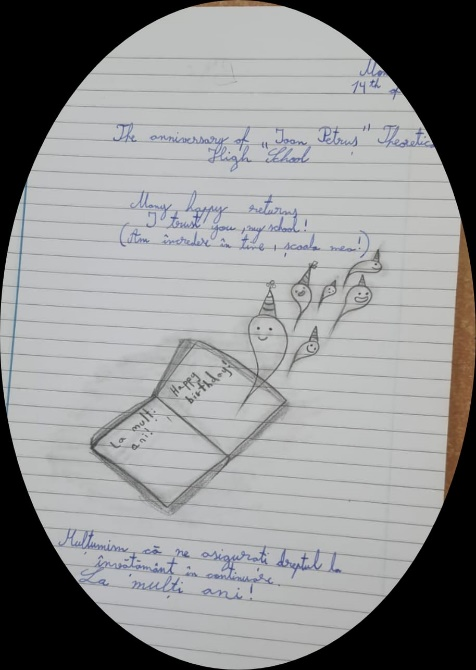 14th of
The anniversary of "Ioan Petruș"
High School
Many happy returns
I trust you, my school!
(Am încredere în tine, școala mea!)
Happy
birthday!
La mulți
ani!
Mulțumim că ne asigurați dreptul la
învățământ în continuare.
La mulți ani!